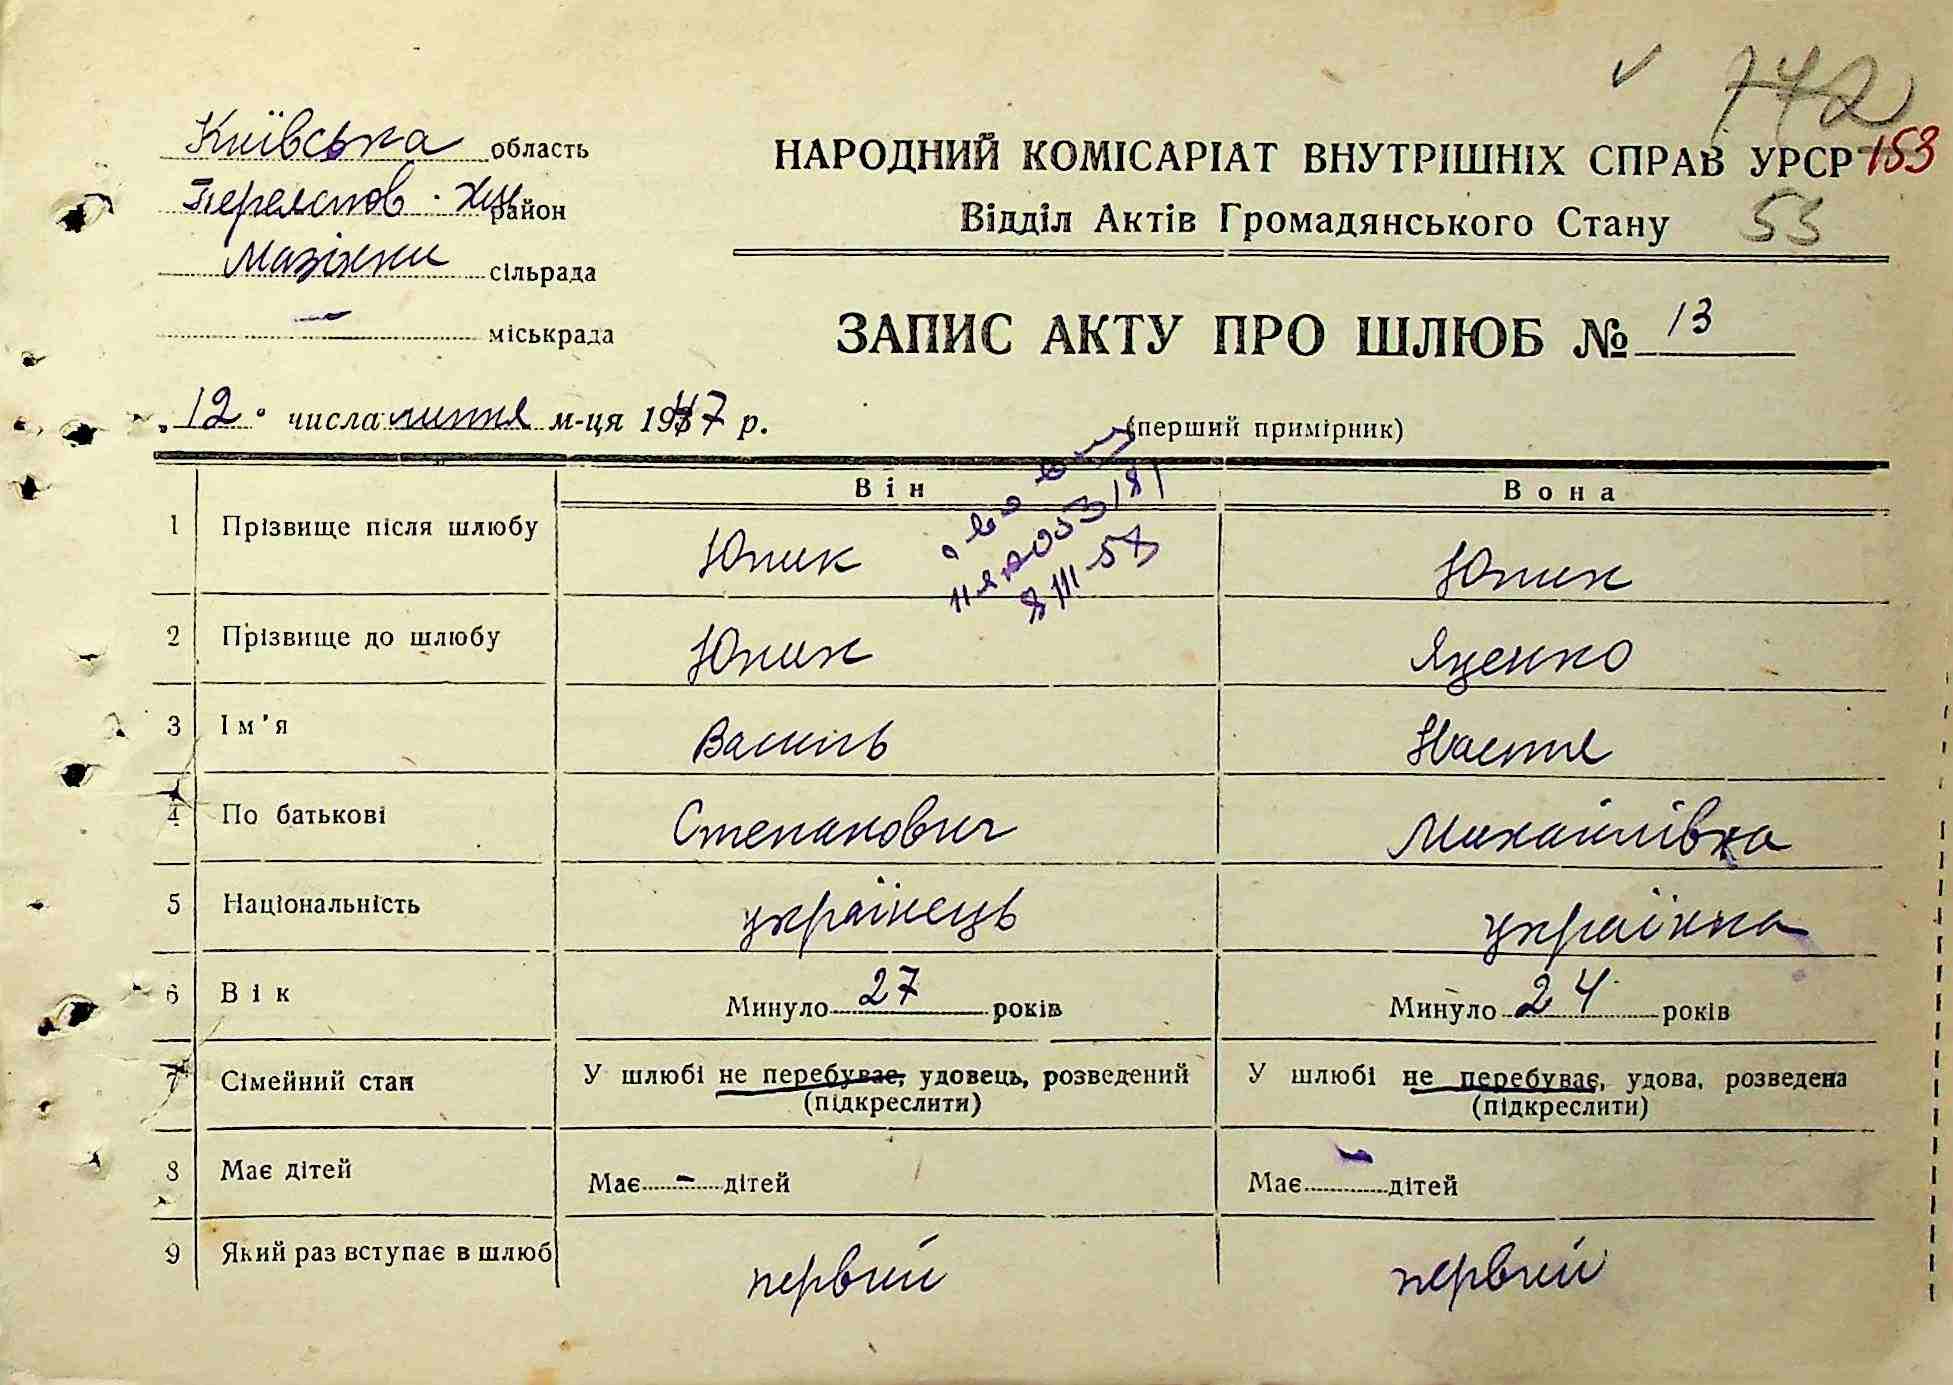 742
Київська область
НАРОДНИЙ КОМІСАРІАТ ВНУТРІШНІХ СПРАВ УРСР 153
Переяслов. Хм район
Відділ Актів Громадянського Стану 53
Мазінки сільрада
міськрада
ЗАПИС АКТУ ПРО ШЛЮБ № 13
„12" числа лютня м-ця 1947 р.
(перший примірник)
Він
Вона
1 Прізвище після шлюбу Юпик Юпик
8/III-57
2 Прізвище до шлюбу Юпик Яценко
3 Ім'я Василь Настя
4 По батькові Степанович Михайлівна
5 Національність українець українка
6 Вік Минуло 27 років Минуло 24 років
7 Сімейний стан У шлюбі не перебуває, удовець, розведений У шлюбі не перебуває, удова, розведена
(підкреслити) (підкреслити)
8 Має дітей Має - дітей Має - дітей
9 Який раз вступає в шлюб первий первий